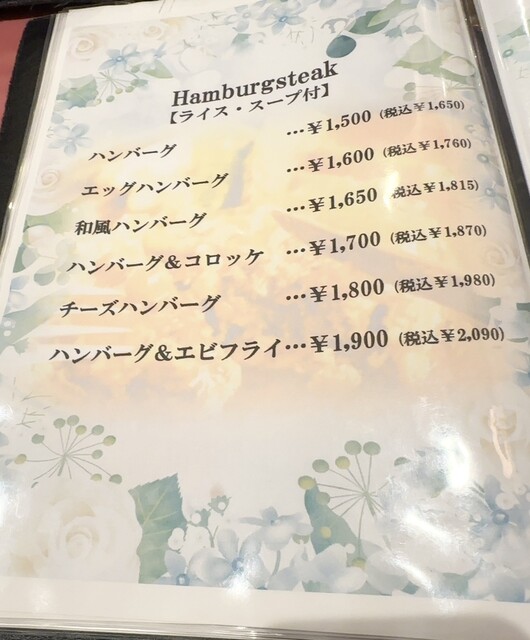 Hamburgsteak
【ライス・スープ付】
ハンバーグ …￥1,500 (税込￥1,650)
エッグハンバーグ …￥1,600 (税込￥1,760)
和風ハンバーグ …￥1,650 (税込￥1,815)
ハンバーグ&コロッケ …￥1,700 (税込￥1,870)
チーズハンバーグ …￥1,800 (税込￥1,980)
ハンバーグ&エビフライ…￥1,900 (税込￥2,090)